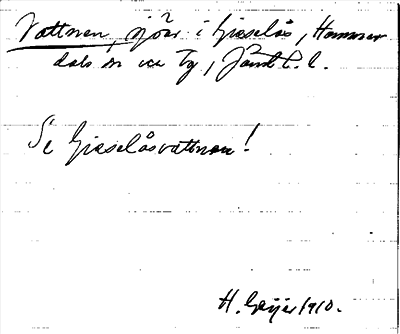 Vattnen, sjöar i Gisselås, Hammer
dals sn och tg, Jämtl. l.
Se Gisselåsvattnen!
H. Geijer 1910.